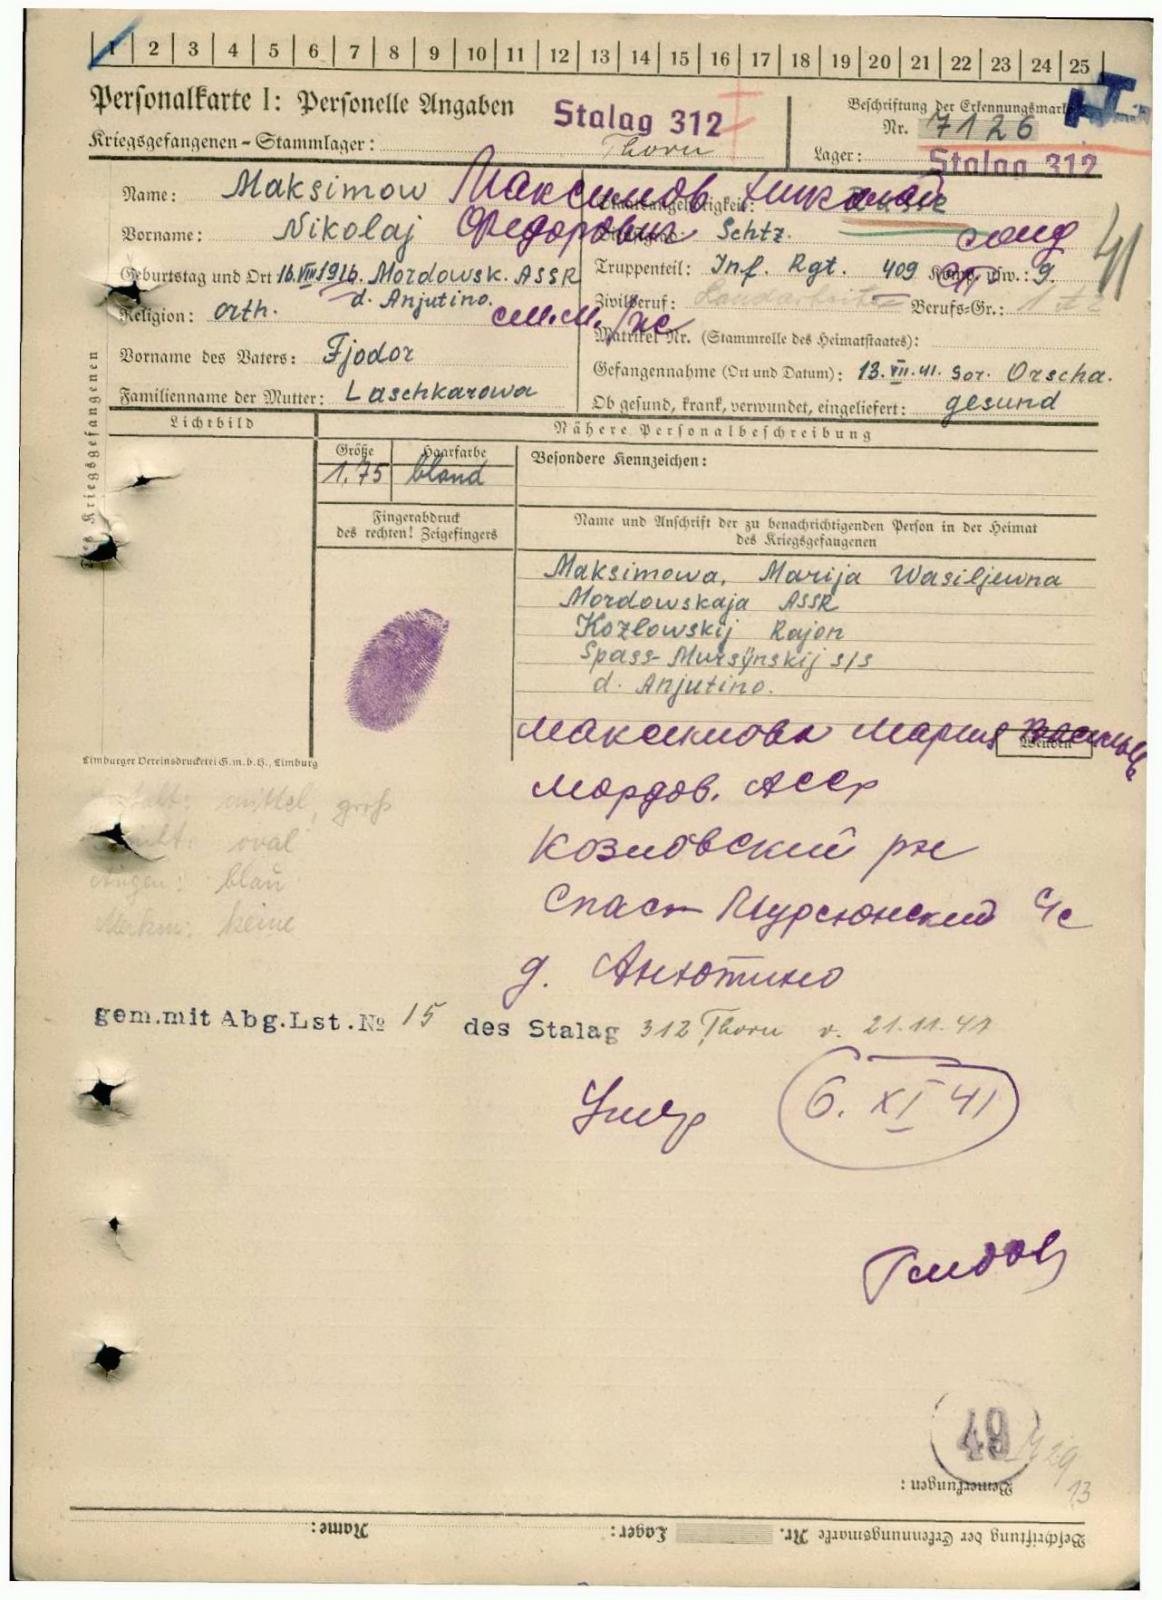 1 2 3 4 5 6 7 8 9 10 11 12 13 14 15 16 17 18 19 20 21 22 23 24 25
Personalkarte I: Personelle Angaben
Stalag 312
Kriegsgefangenen-Stammlager: Thorn
Beschriftung der Erkennungsmarke
Nr. 7126
Lager: Stalag 312
Name: Maksimow Максимов Николай
Vorname: Nikolaj Федорович
Geburtstag und Ort 16.VIII 1916. Mordowsk. ASSR
d. Anjutino.
Religion: orth.
Vorname des Vaters: Fjodor
Familienname der Mutter: Laschkarowa
Staatsangehörigkeit:
Schtz. солд
Truppenteil: Inf. Rgt. 409 Komp. usw.: 9.
Zivilberuf: Landarbeiter Berufs-Gr.: 1
Matrikel Nr. (Stammrolle des Heimatstaates):
Gefangennahme (Ort und Datum): 13.VII.41. Gor. Orscha.
Ob gesund, krank, verwundet, eingeliefert: gesund
41
Kriegsgefangenen
Lichtbild
Nähere Personalbeschreibung
Größe
1.75
Haarfarbe
blond
Besondere Kennzeichen:
Fingerabdruck
des rechten! Zeigefingers
Name und Anschrift der zu benachrichtigenden Person in der Heimat
des Kriegsgefangenen
Maksimowa, Marija Wasiljewna
Mordowskaja ASSR
Kozlowskij Rajon
Spass-Mursynskij s/s
d. Anjutino.
Wenden
Limburger Vereinsdruckerei G.m.b.H., Limburg
Максимова Мария
Мордов. АССР
Козловский рн
Спаст Мурсюнский с/с
д. Анютино
mittel, groß
oval
Augen: blau
Merkm: keine
gem.mit Abg.Lst.№ 15 des Stalag 312 Thorn v. 21.11.41
Умер 6. XI 41
49
Bemerkungen:
13
Name:
Lager:
Beschriftung der Erkennungsmarke Nr.